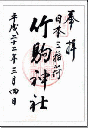 奉拝
日本三稲荷
竹駒神社
平成二十二年三月四日